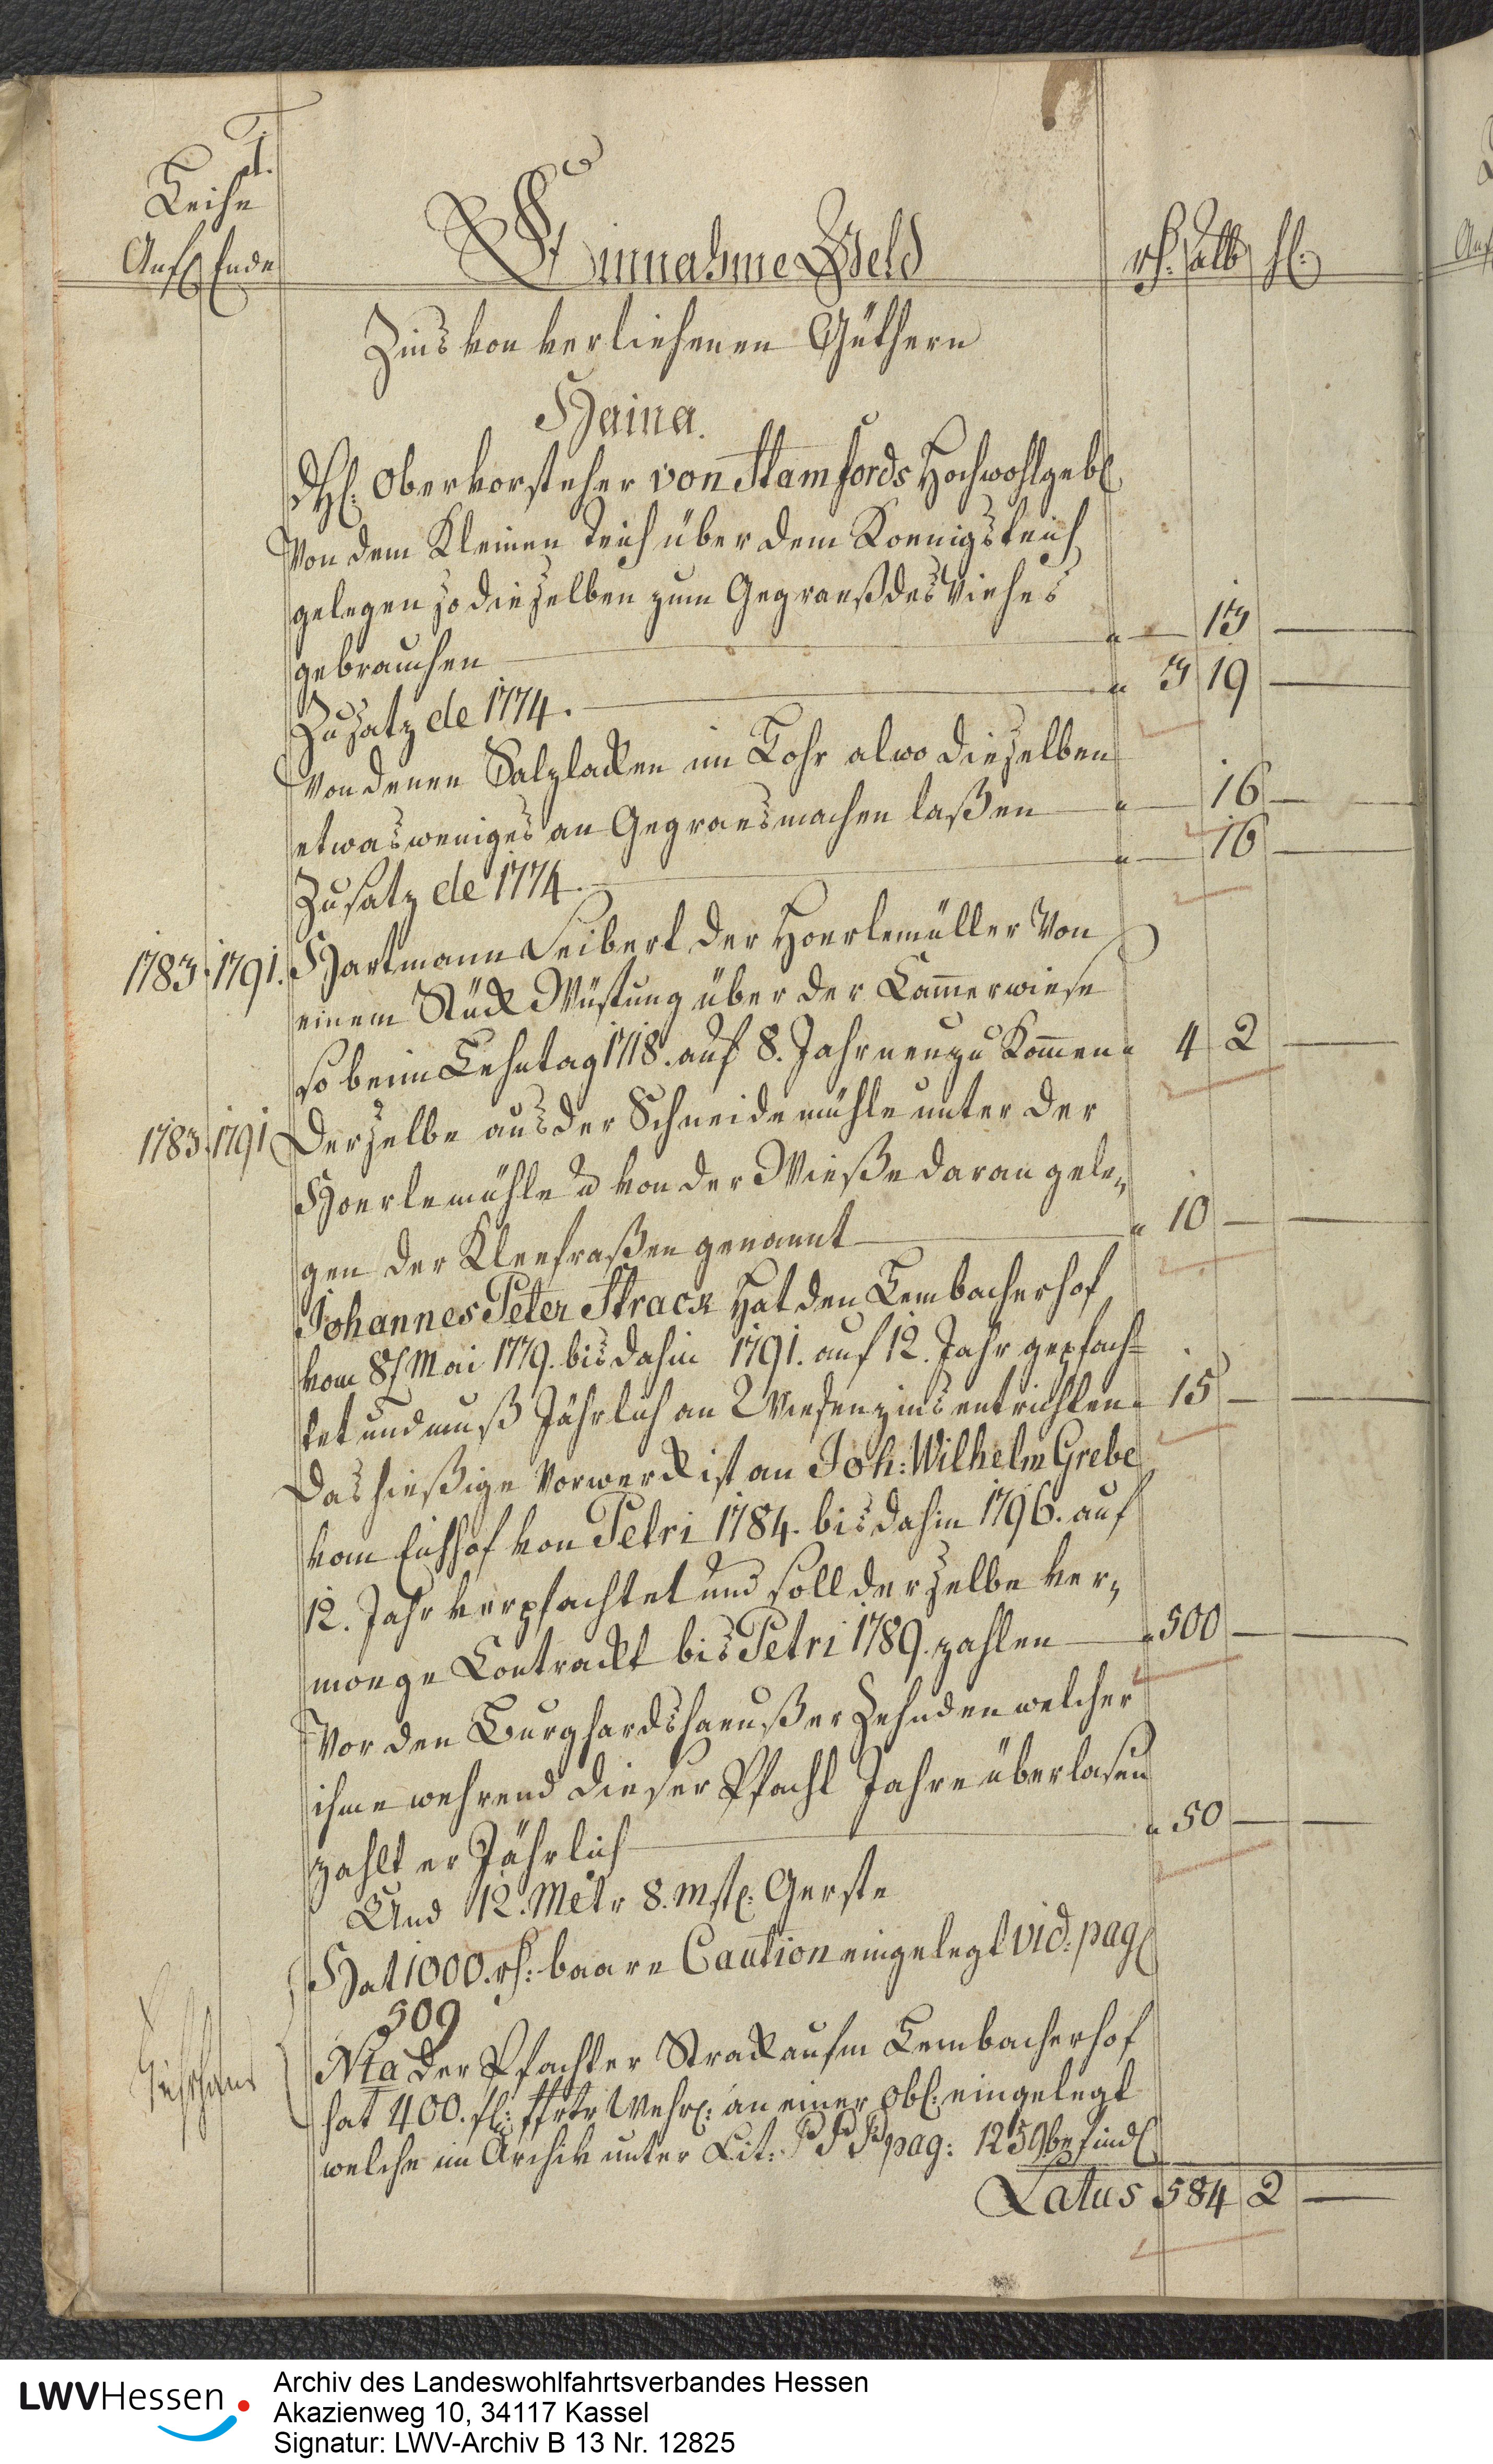 1.
Leihe
Anf. Ende
Einnahme Geld
rh: alb hl:
Zins von verliehenen Güthern
Haina.
H: Obervorsteher von Stamfords Hochwohlgeb:
Von dem Kleinen Teich über dem Koenigsteich
gelegen so dieselben zum Gegraeß des Viehes
gebrauchen — " — 13 —
Zusatz de 1774. — " 3 19 —
Von denen Salzlacken im Lohr alwo dieselben
etwas weniges an Gegraes machen laßen — " — 16 —
Zusatz de 1774. — " — 16 —
1783. 1791. Hartmann Seibert der Hoerlemüller Von
einem Stück Wüstung über der Cam̄erwiese
so beim Lehntag 1718. auf 8. Jahr neu zu Kom̄en " 4 2 —
1783. 1791 Derselbe aus der Schneidemühle unter der
Hoerlemühle u von der Wieße daran gele„
gen der genannt — " 10 — —
Johannes Peter Strack Hat den Lembacherhof
vom 8t Mai 1779. bis dahin 1791. auf 12. Jahr gepfach=
tet und muß Jährlich an Wiesenzins entrichten " 15 — —
Das hießige Vorwerck ist an Joh: Wilhelm Grebe
vom Eichhof von Petri 1784. bis dahin 1796. auf
12. Jahr verpfachtet und soll derselbe ver„
moege Contrackt bis Petri 1789. zahlen — " 500 — —
Vor den Burghardshaeußer Zehnden welcher
ihme wehrend dieser Pfacht Jahre überlasen
zahlt er Jährlich — " 50 — —
Und 12. Metr 8. mst: Gerste
Hat 1000. rh: baare Caution eingelegt vid: pag:
509
Nta Der Pfachter Strack aufm Lembacherhof
hat 400. fl: ffrtr Wehr: an einer obl: eingelegt
welche im Archiv unter Lit: PPP pag: 1259 befindl:
Latus 584 2 —
LWVHessen
Archiv des Landeswohlfahrtsverbandes Hessen
Akazienweg 10, 34117 Kassel
Signatur: LWV-Archiv B 13 Nr. 12825